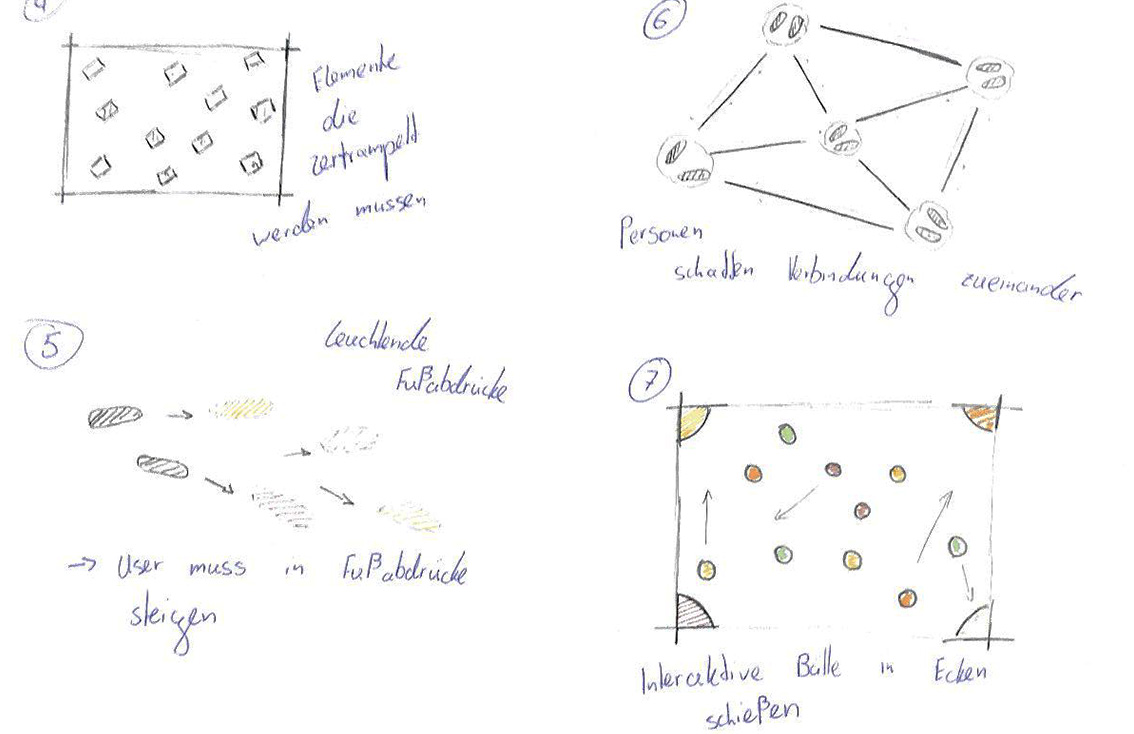 4
Elemente
die
zertrampelt
werden mussen
5
Leuchtende
Fußabdrücke
→ User muss in Fußabdrücke
steigen
6
Personen
schaffen Verbindungen zueinander
7
Interaktive Bälle in Ecken
schießen